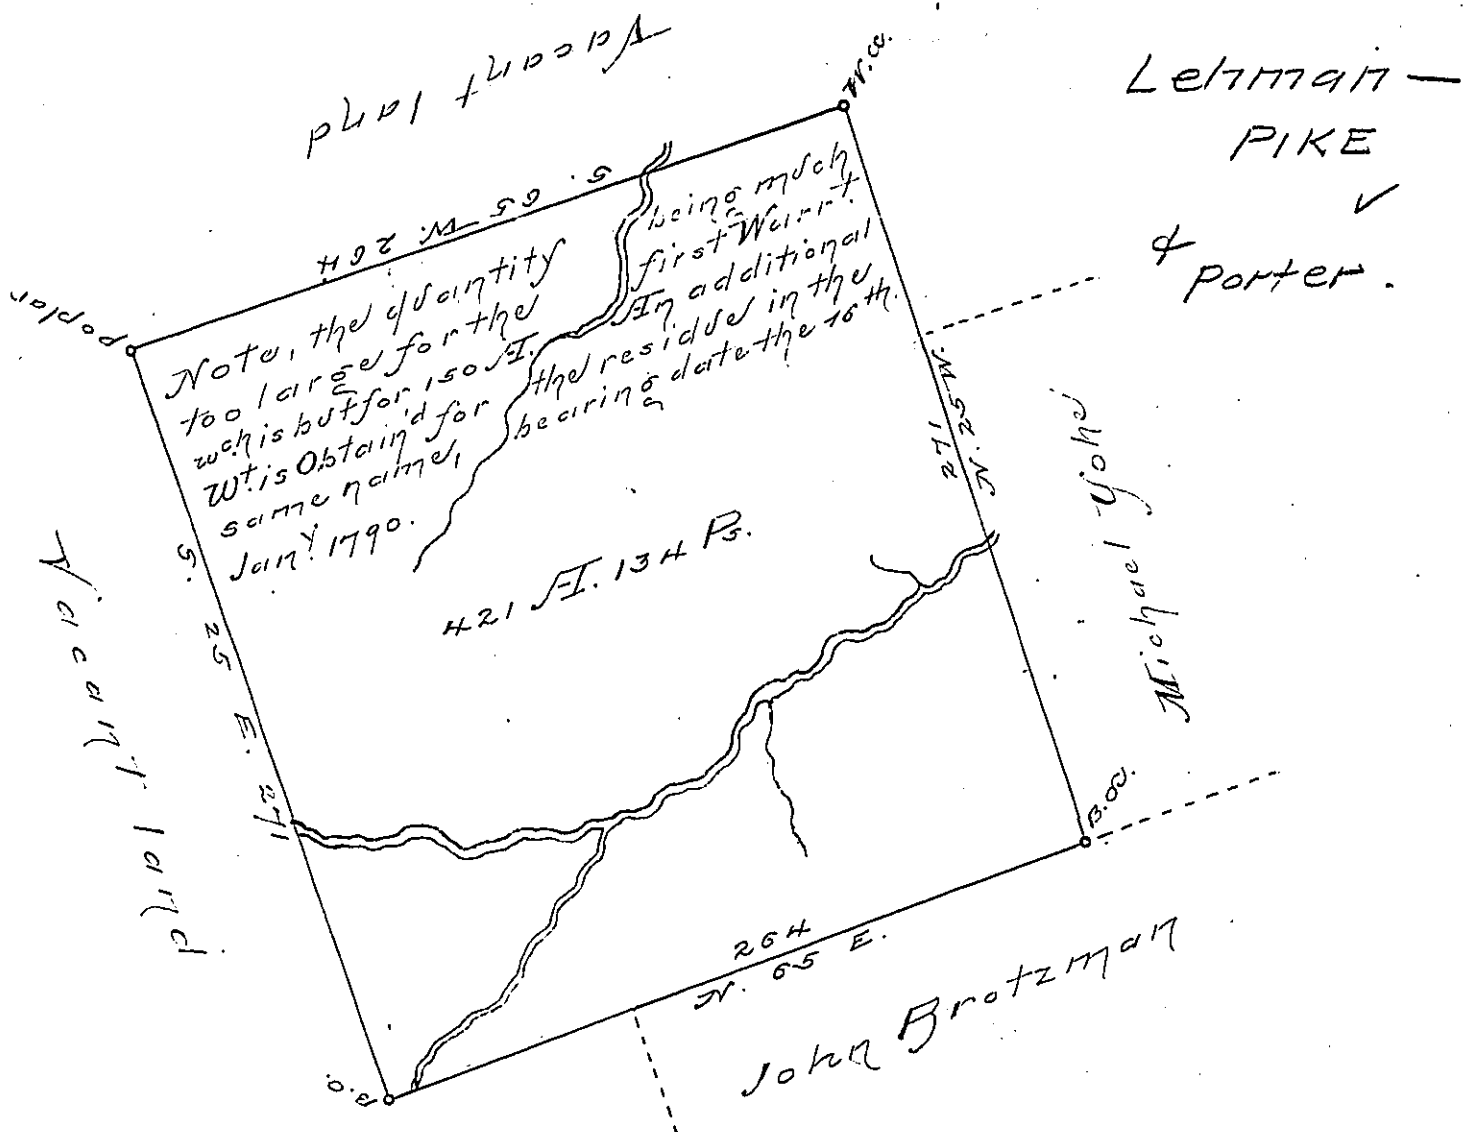 Lehman —
PIKE
✓
& Porter.
Vacant land
W.oa.
S. 65 W. 264
poplar
Note, the quantity being much
too large for the first Warrt.
wch is but for 150 A. An additional
Wt. is Obtain'd for the residue in the
same name, bearing date the 16th.
Jany. 1790.
421 A. 134 Ps.
271
N. 25 W.
Michael Yohe
S. 25 E. 271
Vacant land
B.O.
B.O.
264
N. 65 E.
John Brotzman